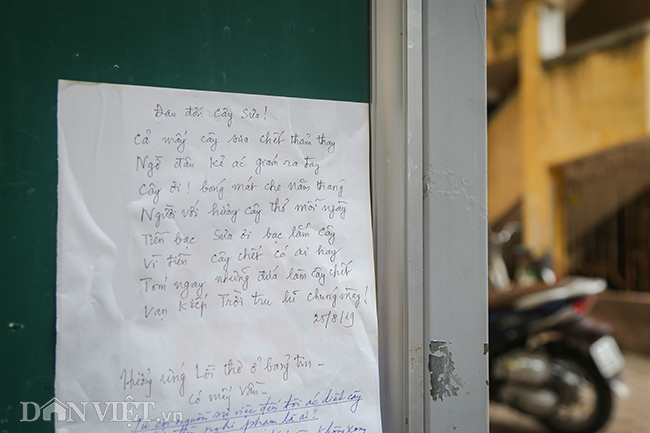 Đau đớn cây sưa!
Cả mấy cây sưa chết thảm thay
Ngờ đâu kẻ ác giam ra tay
Cây ơi! bóng mát che năm tháng
Người với hương cây thở mỗi ngày
Tiền bạc Sưa ơi bạc lắm cây
Vì tiền cây chết có ai hay
Tóm ngay những đứa làm cây chết
Vạn kiếp Trời tru lũ chúng mày!
25/8/19
Hưởng ứng Lời thơ ở bảng tin -
có mấy vần -
người
ác diệt cây
nghi phạm là ai?
DÂNVIỆT.vn